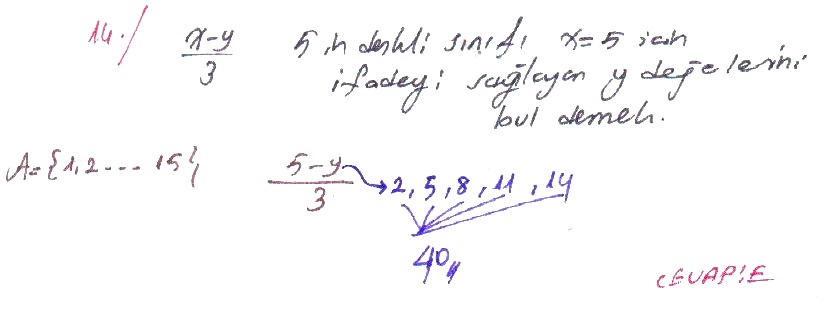 14./ x-y/3 5 in denkli sınıfı x=5 icin
ifadeyi sağlayan y değelerini
bul demek.
A={1,2....15} 5-y/3 → 2, 5, 8, 11, 14
40,,
CEVAP:E